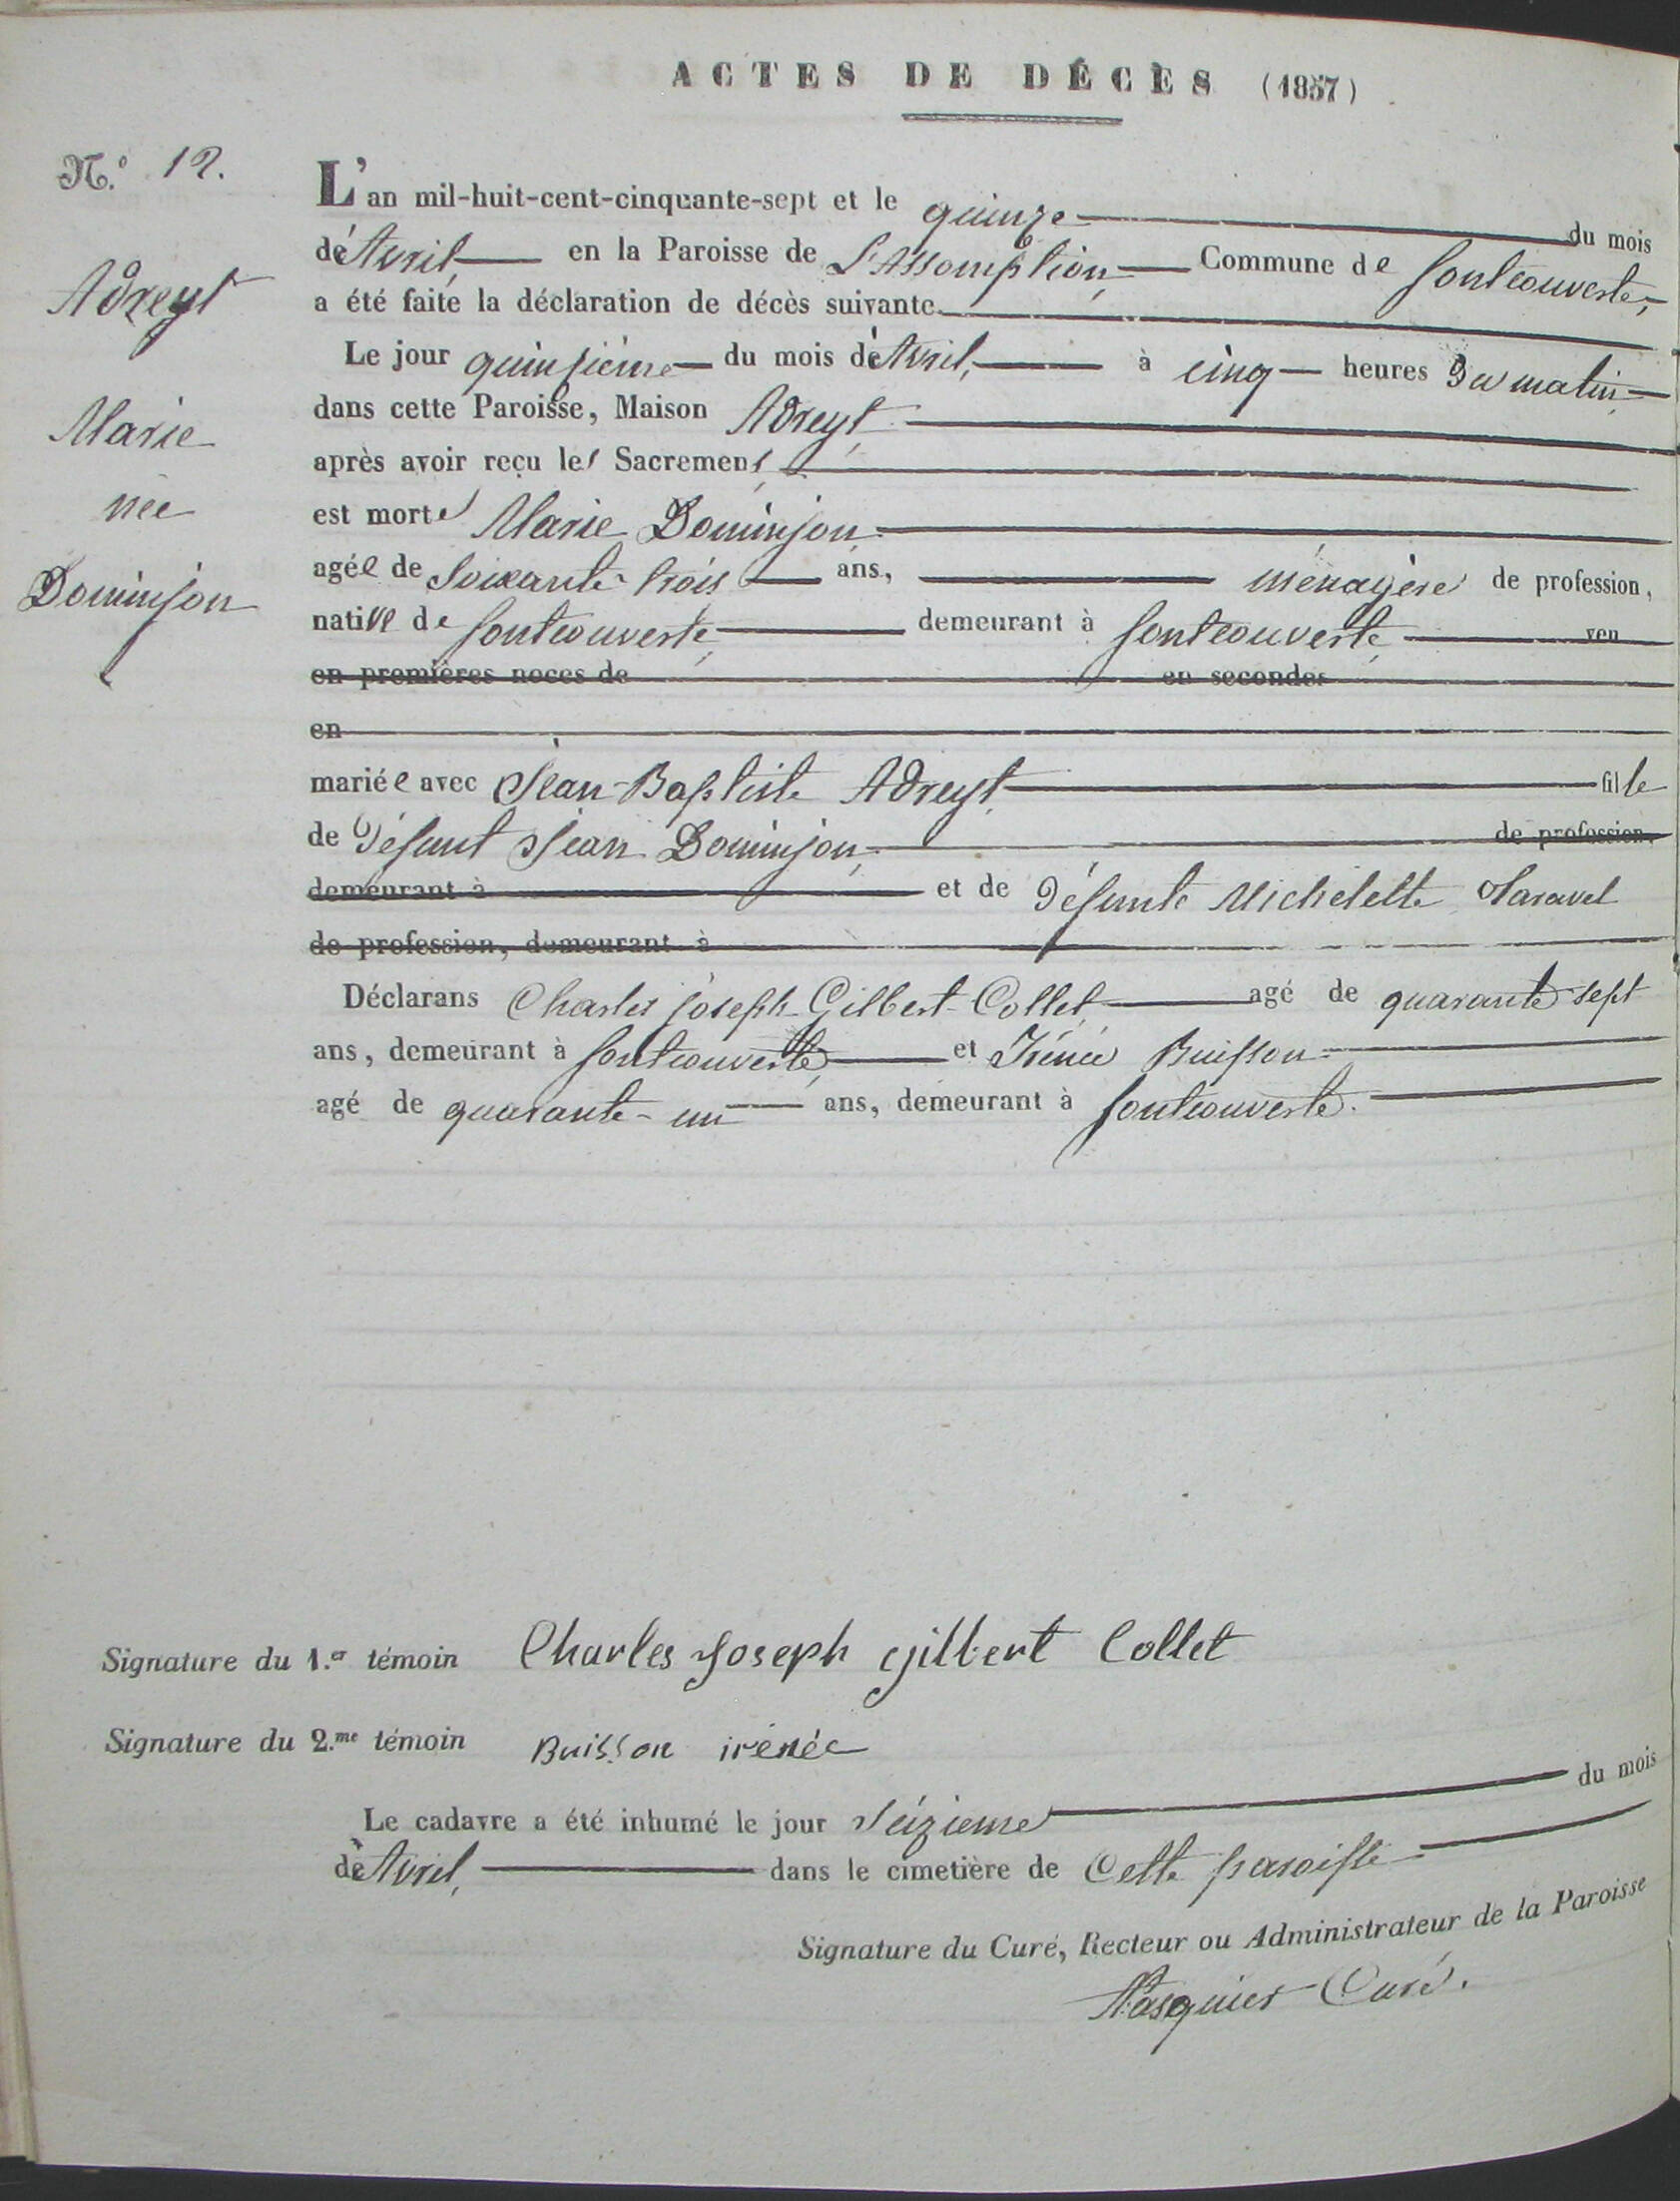 ACTES DE DÉCÈS (1857)
N.º 12.
Adreyt
Marie
née
Dominjon
L'an mil-huit-cent-cinquante-sept et le quinze du mois
d'Avril, en la Paroisse de L'Assomption, Commune de fontcouverte,
a été faite la déclaration de décès suivante.
Le jour quinzième du mois d'Avril, à cinq heures du matin
dans cette Paroisse, Maison Adreyt,
après avoir reçu les Sacremens,
est morte Marie Dominjon
agée de soixante-trois ans, ménagère de profession,
native de fontcouverte, demeurant à fontcouverte, veu
en premières noces de en secondes
en
mariée avec Jean-Baptiste Adreyt, fille
de défunt Jean Dominjon, de profession,
demeurant à et de défunte Michelette
de profession, demeurant à
Déclarans Charles joseph Gilbert-Collet agé de quarante sept
ans, demeurant à fontcouverte, et Irénée Buisson
agé de quarante-un ans, demeurant à fontcouverte.
Signature du 1.er témoin Charles Joseph gilbert Collet
Signature du 2.me témoin Buisson irénée
Le cadavre a été inhumé le jour seizieme du mois
d'Avril, dans le cimetière de cette paroisse
Signature du Curé, Recteur ou Administrateur de la Paroisse
Curé.